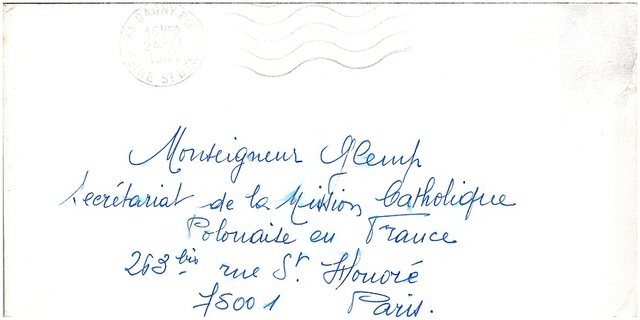 GAGNY PAL
16H
24-12
SEINE ST DENIS
Monseigneur Glemp
Secrétariat de la Mission Catholique
Polonaise en France
263 bis rue St. Honoré
75001 Paris.